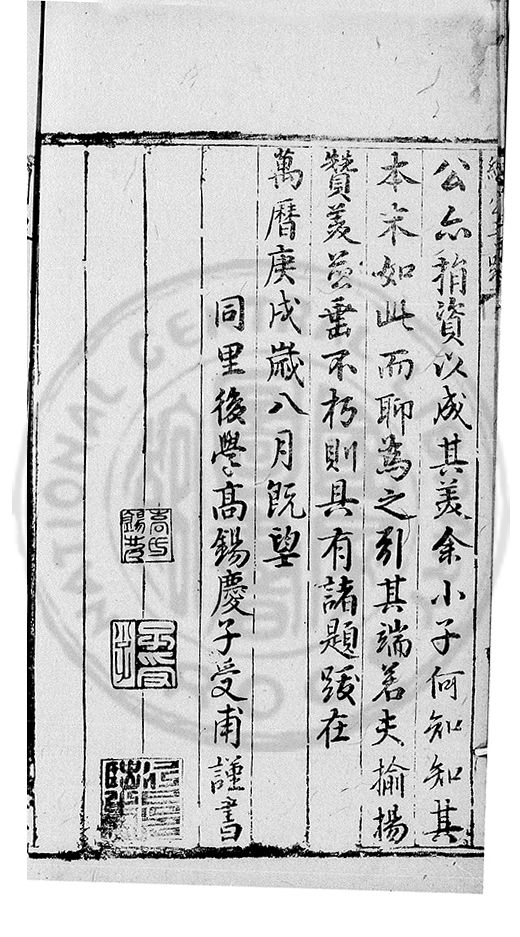 公亦稍資以成其美余小子何知知其
本末如此而聊為之引其端若夫揄揚
贊美並垂不朽則具有諸題跋在
萬曆庚戌歲八月既望
同里後學高錫慶子受甫謹書